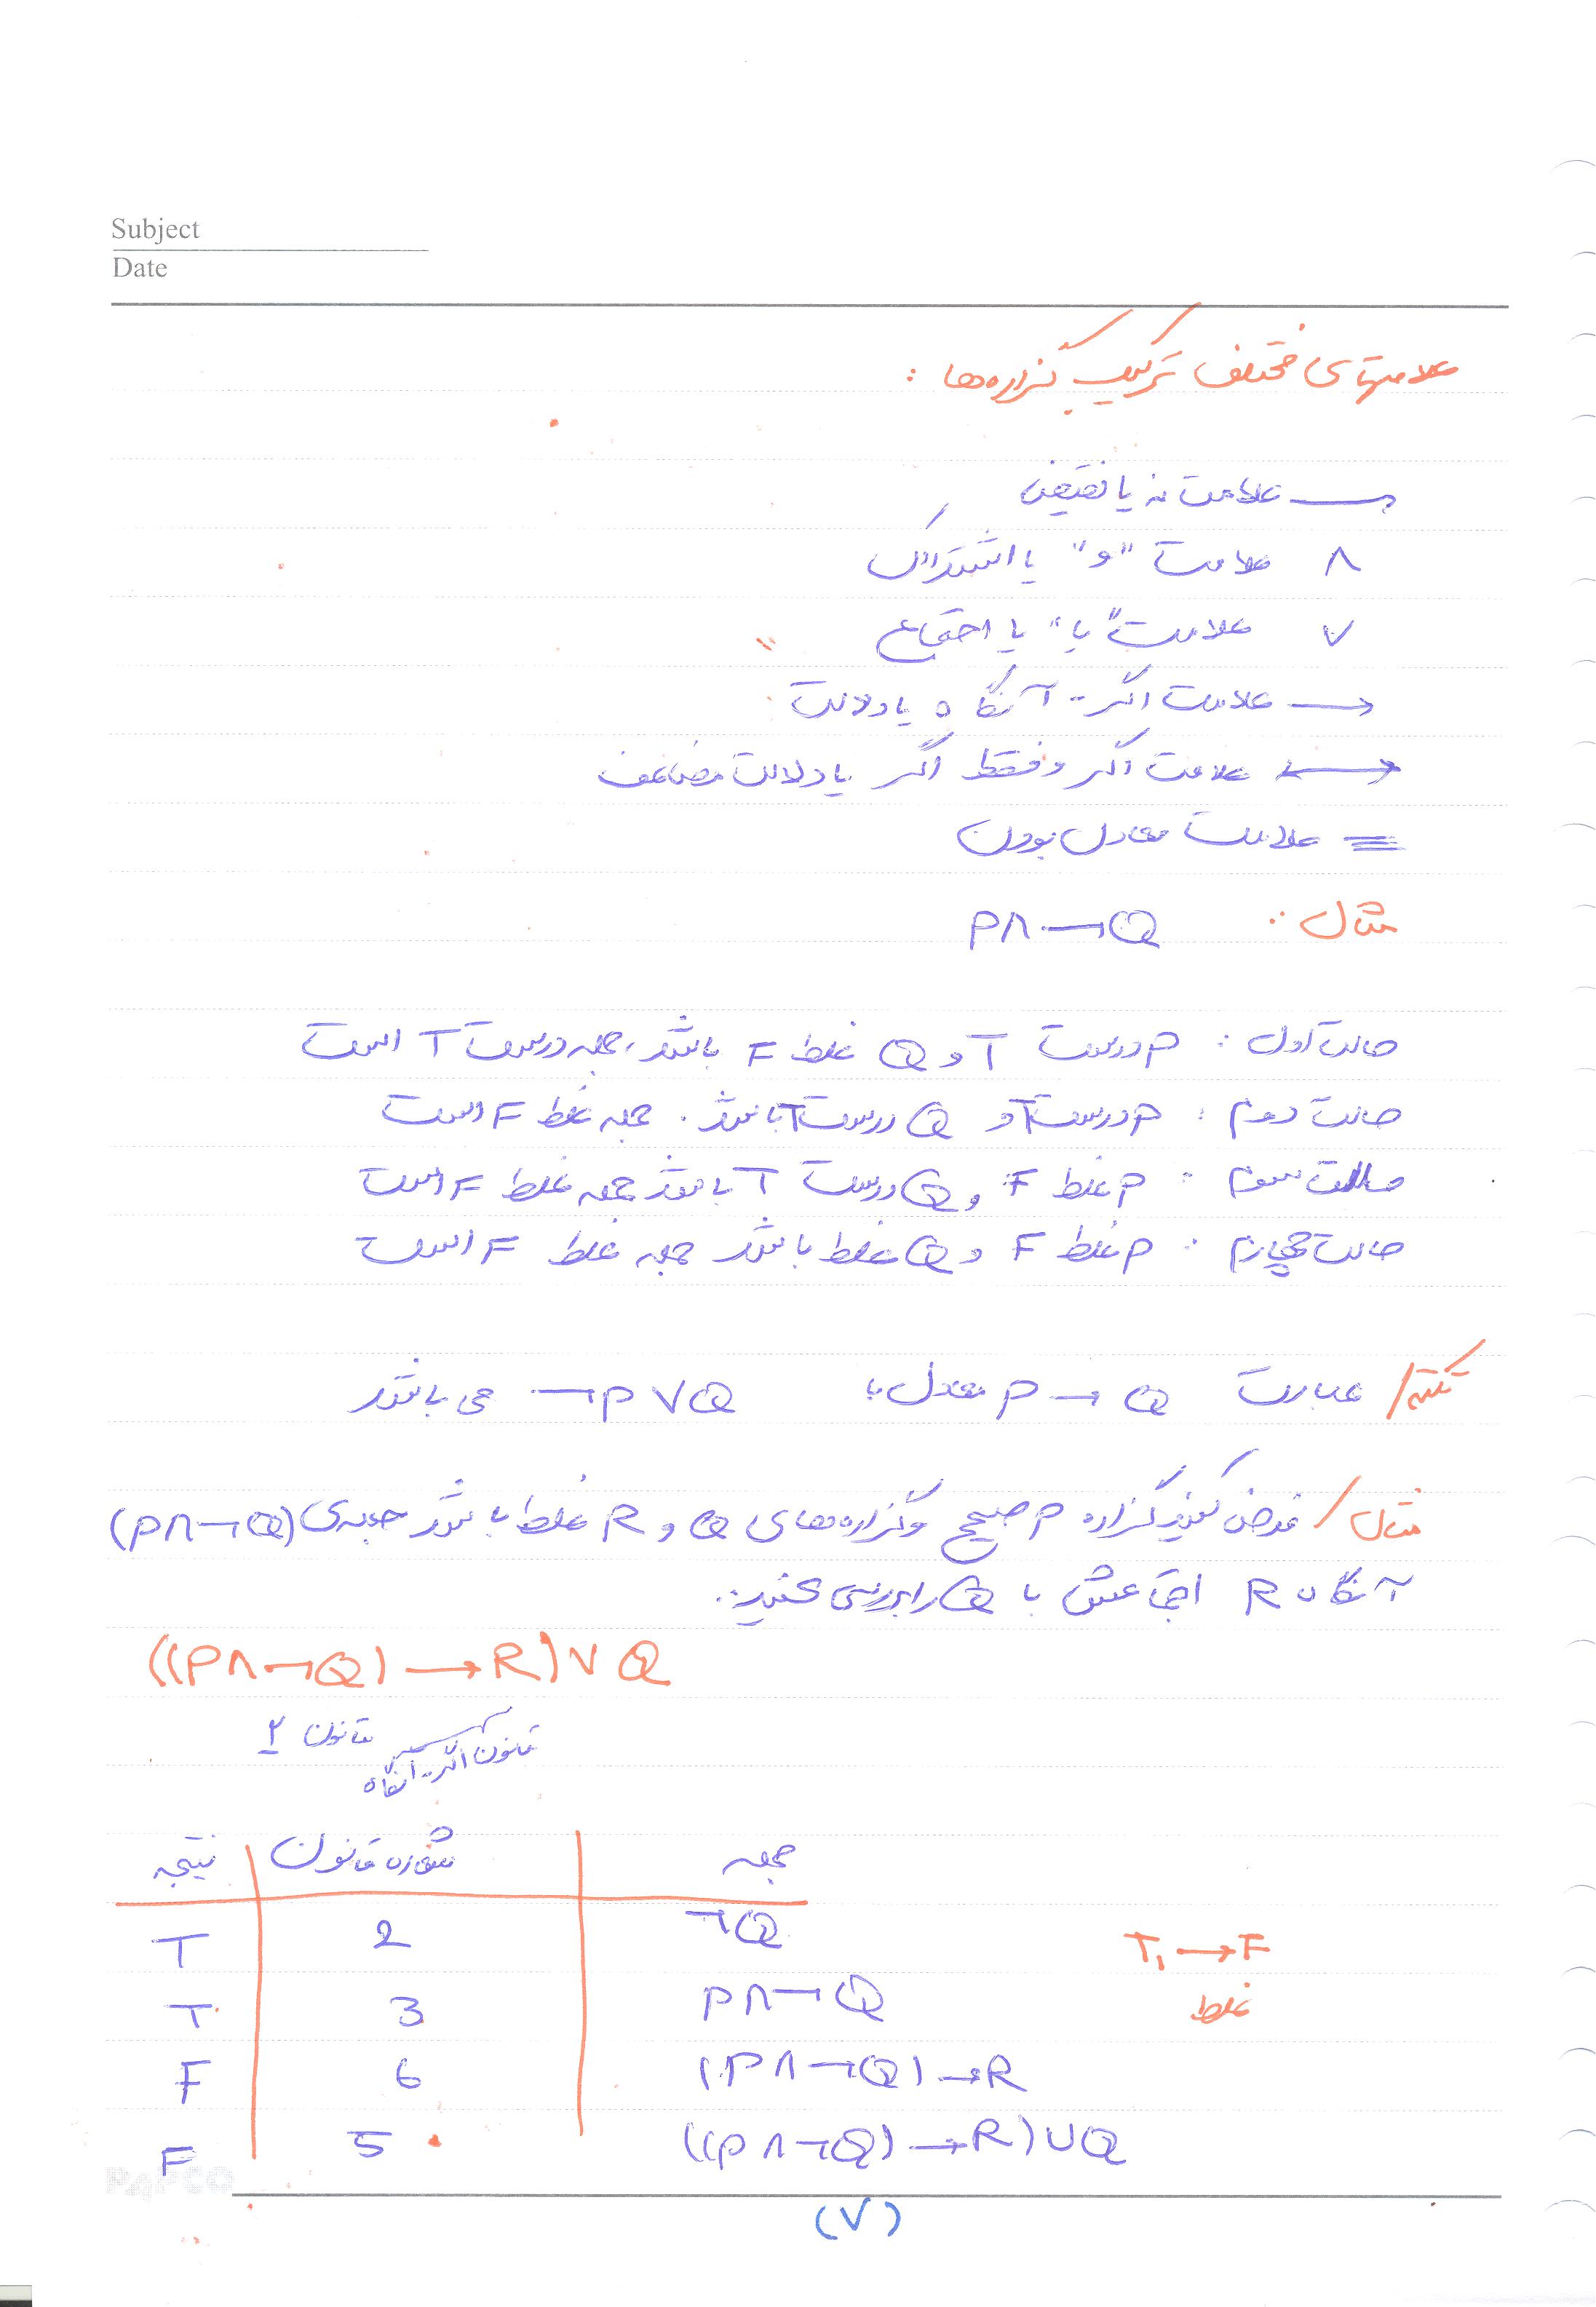 Subject
Date
علامتهای مختلف ترکیب گزاره‌ها :
¬ علامت نه یا نقیض
∧ علامت "و" یا اشتراک
∨ علامت "یا" یا اجتماع
→ علامت اگر - آنگاه یا دلالت
↔ علامت اگر و فقط اگر یا دلالت مضاعف
≡ علامت معادل بودن
مثال : P∧¬Q
حالت اول : P درست T و Q غلط F باشد، جمله درست T است
حالت دوم : P درست T و Q درست T باشد. جمله غلط F است
حالت سوم : P غلط F و Q درست T باشد جمله غلط F است
حالت چهارم : P غلط F و Q غلط باشد جمله غلط F است
نکته/ عبارت P → Q معادل با ¬P∨Q می باشد
مثال/ فرض کنید گزاره P صحیح و گزاره‌های Q و R غلط باشد جمله‌ی (P∧¬Q)
آنگاه R اجتماعش با Q را بررسی کنید.
((P∧¬Q) → R)∨Q
قانون ۲ قانون اگر - آنگاه
جمله شماره قانون نتیجه
¬Q 2 T
T → F
P∧¬Q 3 T
غلط
(P∧¬Q) → R 6 F
((P∧¬Q) → R)∪Q 5 F
PAPCO
(۷)